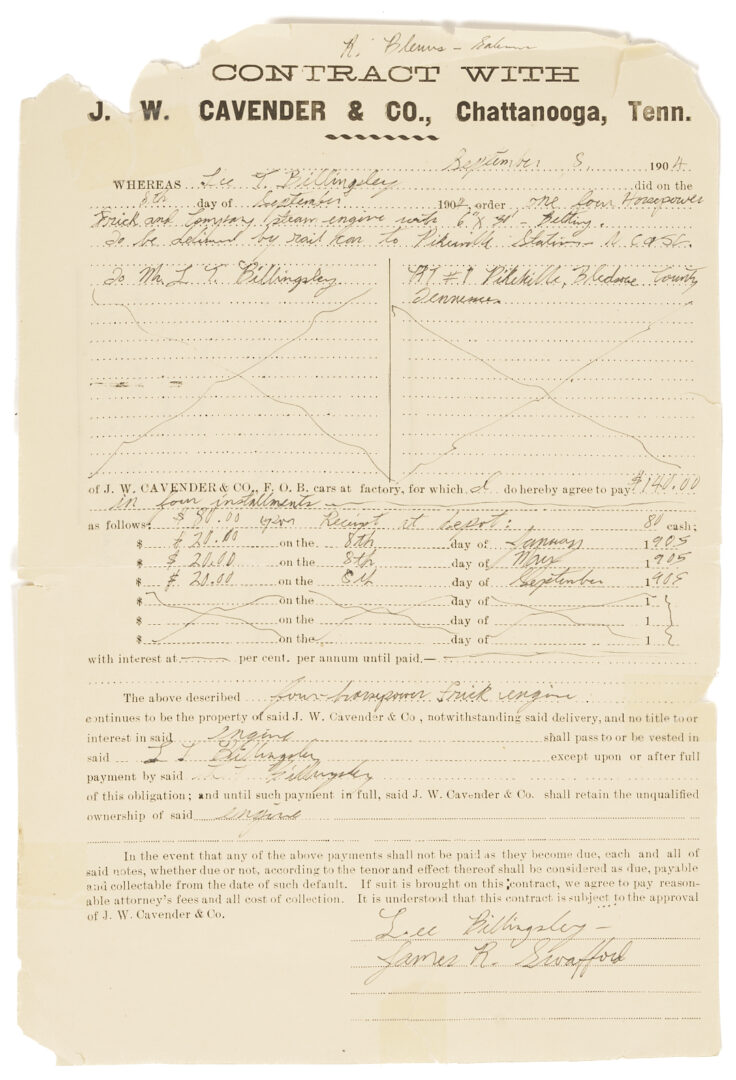 R. Blevins - Salesman
CONTRACT WITH
J. W. CAVENDER & CO., Chattanooga, Tenn.
September 8, 1904
WHEREAS Lee T. Billingsley did on the
8th day of September 1904, order one four Horsepower
Frick and Company steam engine with 6" x Belting.
To be delivered by rail car to Pikeville Station -
To Mr. L. T. Billingsley
RT #1 Pikeville, Bledsoe County
Tennessee
of J. W. CAVENDER & CO., F. O. B. cars at factory, for which I do hereby agree to pay $140.00
in four installments
as follows: $80.00 upon Receipt at depot: 80 cash;
$ $20.00 on the 8th day of January 1905
$ $20.00 on the 8th day of May 1905
$ $20.00 on the 8th day of September 1905
$ on the day of 1
$ on the day of 1
$ on the day of 1
with interest at per cent. per annum until paid.—
The above described four horsepower Frick engine
continues to be the property of said J. W. Cavender & Co., notwithstanding said delivery, and no title to or
interest in said engine shall pass to or be vested in
said L T Billingsley except upon or after full
payment by said L. T. Billingsley
of this obligation; and until such payment in full, said J. W. Cavender & Co. shall retain the unqualified
ownership of said engine
In the event that any of the above payments shall not be paid as they become due, each and all of
said notes, whether due or not, according to the tenor and effect thereof shall be considered as due, payable
and collectable from the date of such default. If suit is brought on this contract, we agree to pay reason-
able attorney's fees and all cost of collection. It is understood that this contract is subject to the approval
of J. W. Cavender & Co.
Lee Billingsley -
James R. Swafford